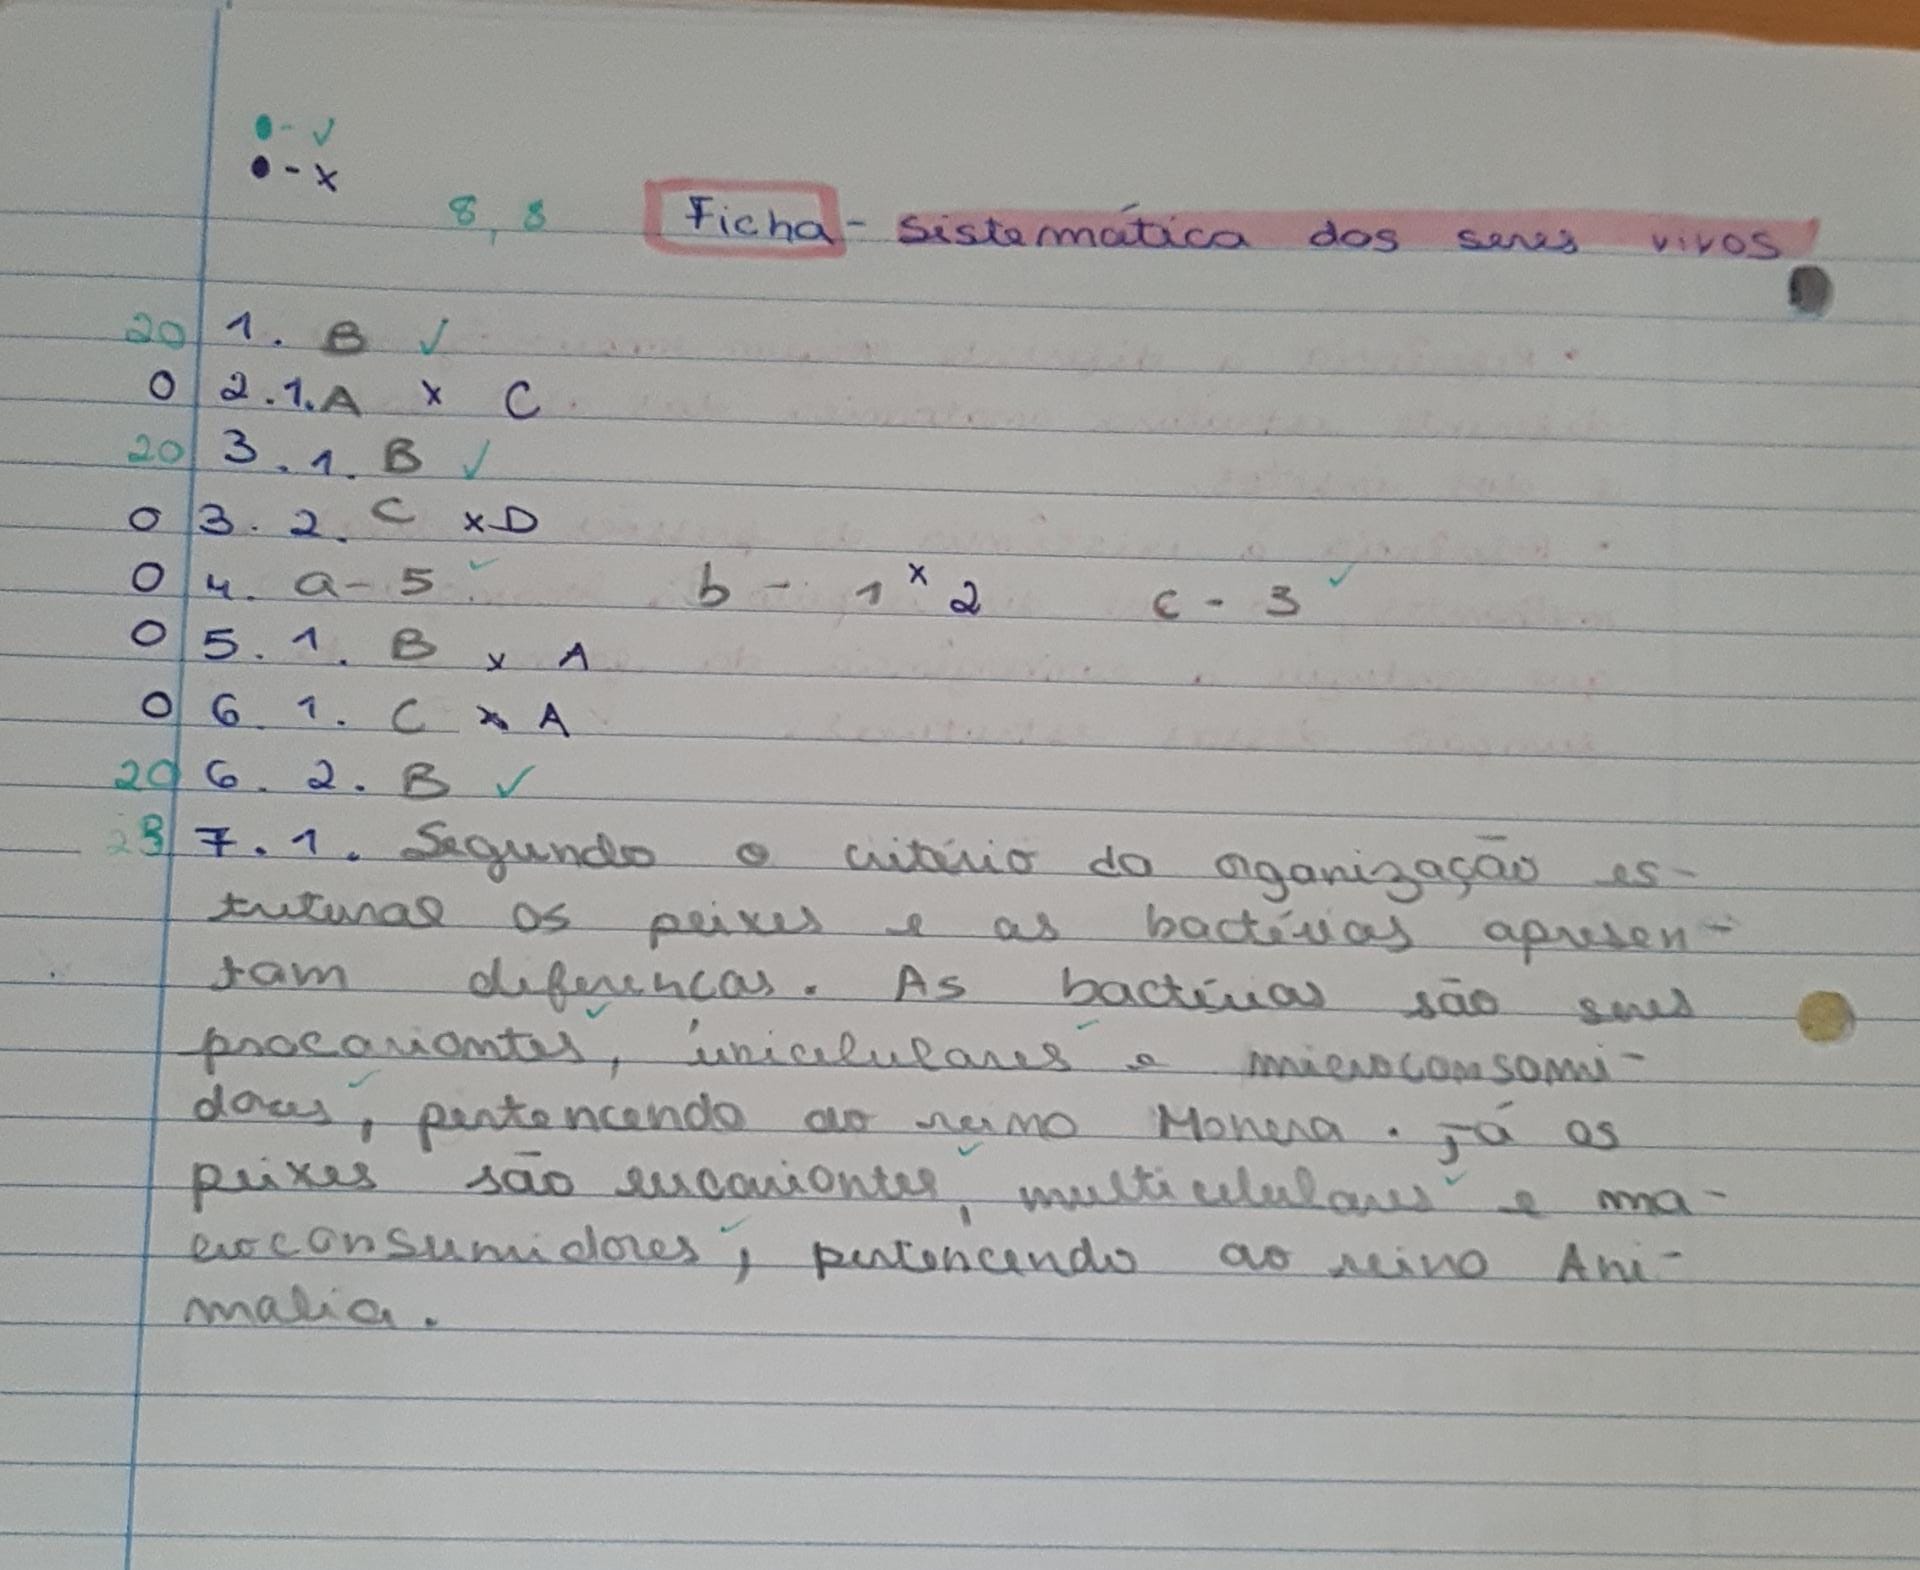 ●- ✓
●- x
8,8 Ficha - sistemática dos seres vivos
20 1. B ✓
0 2.1. A x C
20 3.1. B ✓
0 3.2. C x D
0 4. a- 5 ✓ b - 1 x 2 c - 3 ✓
0 5.1. B x A
0 6.1. C x A
20 6.2. B ✓
28 7.1. Segundo o critério da organização es-
trutural os peixes e as bactérias apresen-
tam diferenças. As bactérias são seres
procariontes, unicelulares e microconsomi-
dores, pertencendo ao reino Monera. Já os
peixes são eucariontes, multicelulares e ma-
croconsumidores, pertencendo ao reino Ani-
malia.